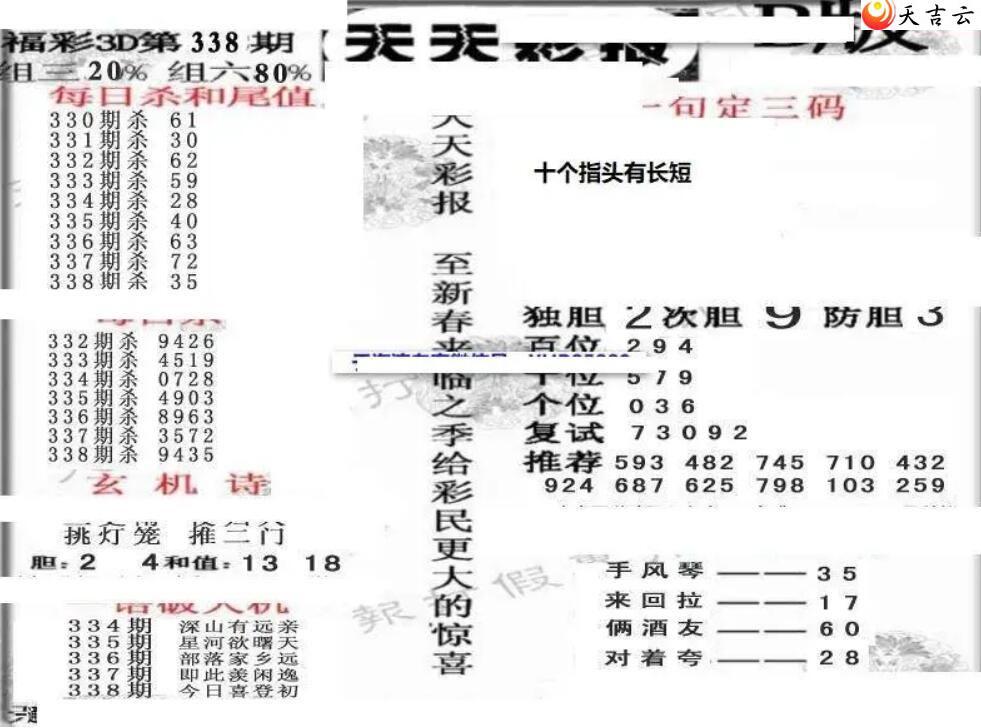 天吉云
福彩3D第 338 期
天天彩报
组三 20% 组六80%
每日杀和尾值
330期杀 61
331期杀 30
332期杀 62
333期杀 59
334期杀 28
335期杀 40
336期杀 63
337期杀 72
338期杀 35
每日杀
332期杀 9426
333期杀 4519
334期杀 0728
335期杀 4903
336期杀 8963
337期杀 3572
338期杀 9435
玄机诗
挑灯笼 推三门
胆:2 4和值:13 18
一语破天机
334期 深山有远亲
335期 星河欲曙天
336期 部落家乡远
337期 即此羡闲逸
338期 今日喜登初
天天彩报 至新春来临之季给彩民更大的惊喜
一句定三码
十个指头有长短
独胆 2 次胆 9 防胆 3
百位 294
十位 579
个位 036
复试 73092
推荐 593 482 745 710 432
924 687 625 798 103 259
手风琴 —— 35
来回拉 —— 17
俩酒友 —— 60
对着夸 —— 28